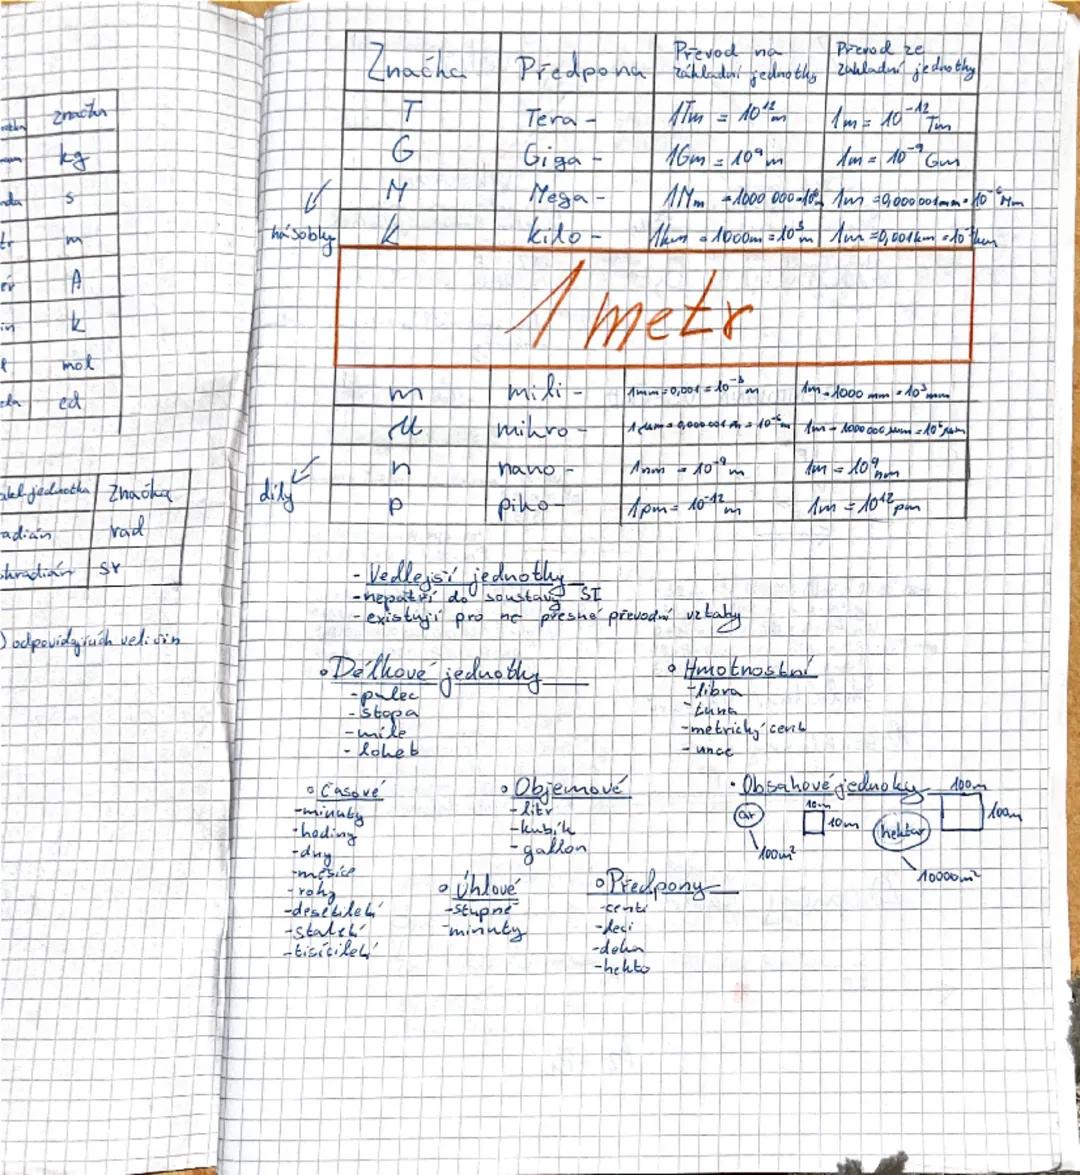 značka
kg
s
m
A
k
mol
cd
jednotka Značka
rad
sr
odpovídajících veličin
Značka Předpona Převod na základní jednotky Převod ze základní jednotky
T Tera - 1Tm = 10¹²m 1m = 10⁻¹² Tm
G Giga - 1Gm = 10⁹ m 1m = 10⁻⁹ Gm
M Mega - 1Mm = 1000 000 = 10⁶ 10⁻⁶ Mm
násobky k kilo - 1km = 1000m = 10³ m 1m = 0,001km = 10⁻³ km
1 metr
m mili - 1mm = 0,001 = 10⁻³ m 1m = 1000 mm = 10³ mm
μ mikro - 1μm = 0,000 001 m = 10⁻⁶ m 1m = 1000 000 μm = 10⁶ μm
n nano - 1nm = 10⁻⁹ m 1m = 10⁹ nm
díly p piko - 1pm = 10⁻¹² m 1m = 10¹² pm
- Vedlejsí jednotky
- nepatří do soustavy SI
- existují pro ně přesné převodní vztahy
• Délkové jednotky
- palec
- stopa
- míle
- loket
• Hmotnostní
- libra
- tuna
- metrický cent
- unce
• Časové
- minuty
- hodiny
- dny
- měsíce
- roky
- desetiletí
- staletí
- tisíciletí
• Objemové
- litr
- kubík
- gallon
• Obsahové jednoky
ar
10m
10m
100m²
hektar
100m
100m
10000m²
• Úhlové
- stupně
- minuty
• Předpony
- centi
- deci
- deka
- hekto